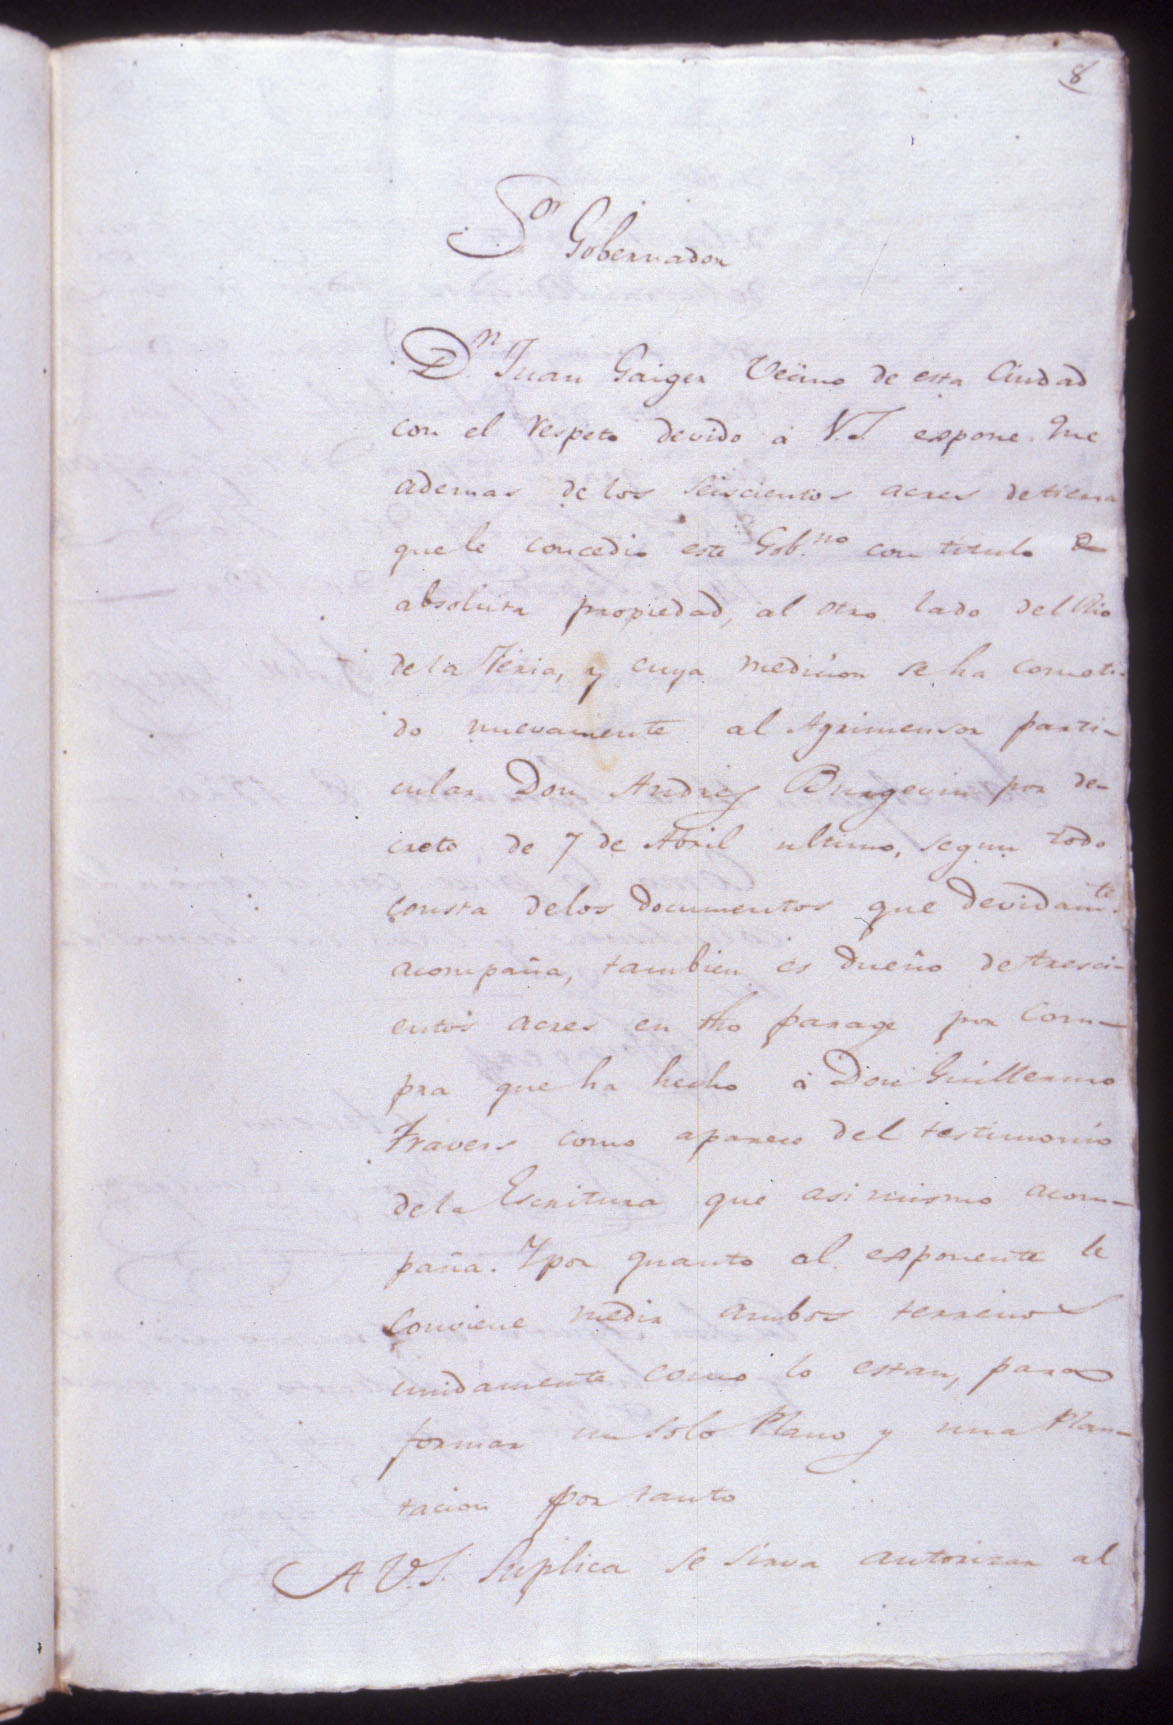 8
Sor Gobernador
Dn Juan Gaiger Vecino de esta Ciudad
con el respeto devido á V.S. expone. Que
ademas de los seiscientos acres de tierra
que le concedio este Gobno con titulo de
absoluta propiedad, al otro lado del Rio
de la Feria, y cuya medicion se ha cometi-
do nuevamente al Agrimensor parti-
cular Don Andres Burgevin por de-
creto de 7 de Abril ultimo, segun todo
consta de los documentos que devidamte
acompaña, tambien es dueño de tresci-
entos acres en dho parage por com-
pra que ha hecho á Don Guillermo
Travers como aparece del testimonio
de la Escritura que asi mismo acom-
paña. Y por quanto al exponente le
conviene medir ambos terrenos
unidamente como lo estan, para
formar un solo Plano y una Plan-
tacion por tanto
A V.S. Suplica se sirva autorizar al